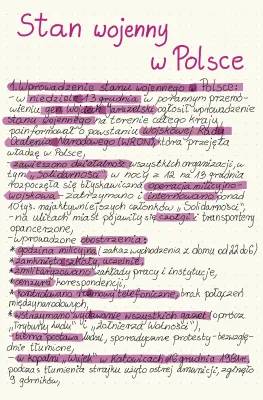 Stan wojenny
w Polsce
1. Wprowadzenie stanu wojennego w Polsce:
- w niedzielę 13 grudnia w porannym przemó-
wieniu gen. Wojciech Jaruzelski ogłosił wprowadzenie
stanu wojennego na terenie całego kraju,
poinformował o powstaniu Wojskowej Rady
Ocalenia Narodowego (WRON), która przejęła
władzę w Polsce,
- zawieszono działalność wszystkich organizacji, w
tym „Solidarności" w nocy z 12 na 13 grudnia
rozpoczęła się błyskawiczna operacja milicyjno -
wojskowa - zatrzymano i internowano ponad
10 tys. najaktywniejszych członków „Solidarność",
- na ulicach miast pojawiły się czołgi i transportery
opancerzone,
- wprowadzono obostrzenia:
* godzina milicyjna (zakaz wychodzenia z domu od 22 do 6)
* zamknięto szkoły, uczelnie,
* zmilitaryzowano zakłady pracy i instytucje,
* cenzura korespondencji,
* kontrolowano rozmowy telefoniczne, brak połączeń
międzynarodowych,
* wstrzymano wydawanie wszystkich gazet (oprócz
„Trybuny Ludu" i „Żołnierza Wolności"),
- bierna postawa ludzi, sporadyczne protesty - bezwzglę-
dnie tłumione,
- w kopalni „Wujek" w Katowicach 16 grudnia 1981r.
podczas tłumienia strajku użyto ostrej amunicji, zginęło
9 górników,